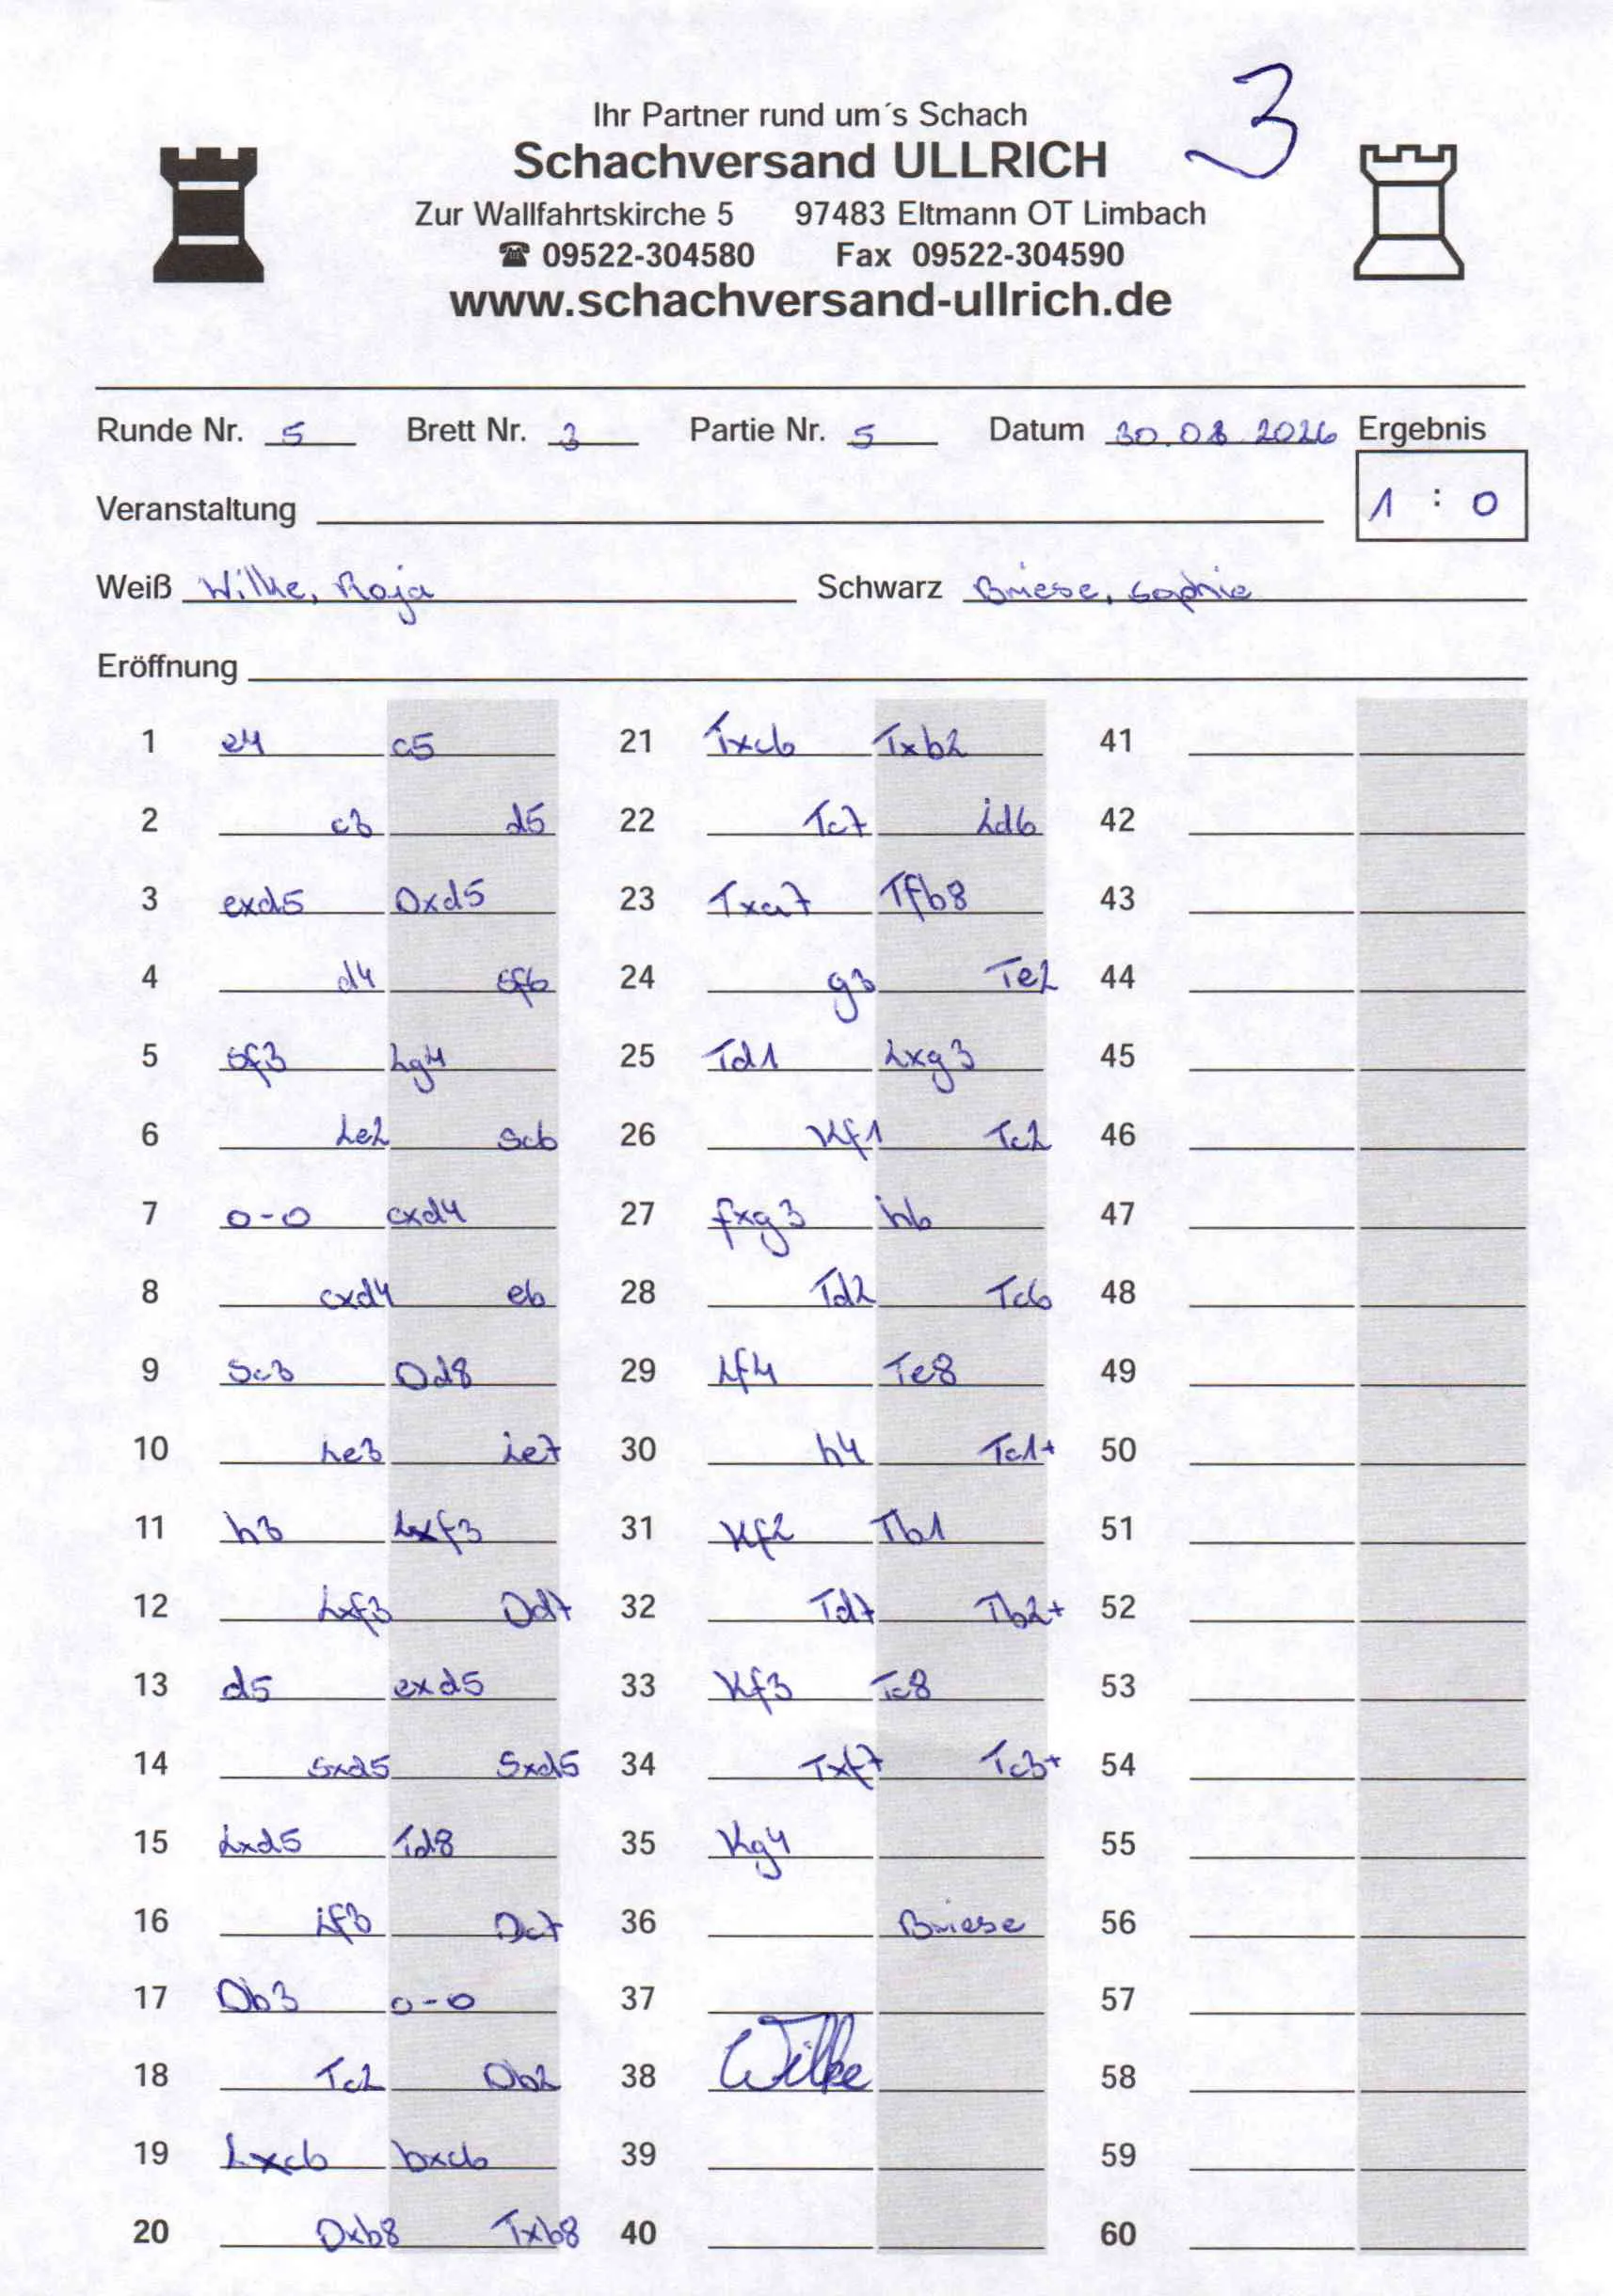 3
Ihr Partner rund um´s Schach
Schachversand ULLRICH
Zur Wallfahrtskirche 5 97483 Eltmann OT Limbach
☎ 09522-304580 Fax 09522-304590
www.schachversand-ullrich.de
Runde Nr. 5 Brett Nr. 3 Partie Nr. 5 Datum 30.08.2026 Ergebnis
Veranstaltung 1 : 0
Weiß Wilke, Roja Schwarz Briese, Sophie
Eröffnung
1 e4 c5 21 Txc6 Txb2 41
2 c3 d5 22 Tc7 Ld6 42
3 exd5 Dxd5 23 Txa7 Tfb8 43
4 d4 Sf6 24 g3 Te2 44
5 Sf3 Lg4 25 Td1 Lxg3 45
6 Le2 Sc6 26 Kf1 Tc2 46
7 0-0 cxd4 27 fxg3 h6 47
8 cxd4 e6 28 Td2 Tc6 48
9 Sc3 Dd8 29 Lf4 Te8 49
10 Le3 Le7 30 h4 Tc1+ 50
11 h3 Lxf3 31 Kf2 Tb1 51
12 Lxf3 Dd7 32 Td7 Tb2+ 52
13 d5 exd5 33 Kf3 Tc8 53
14 Sxd5 Sxd5 34 Txf7 Tc3+ 54
15 Lxd5 Td8 35 Kg4 55
16 Lf3 Dc7 36 Briese 56
17 Db3 0-0 37 57
18 Tc2 Db2 38 Wilke 58
19 Lxc6 bxc6 39 59
20 Dxb8 Txb8 40 60